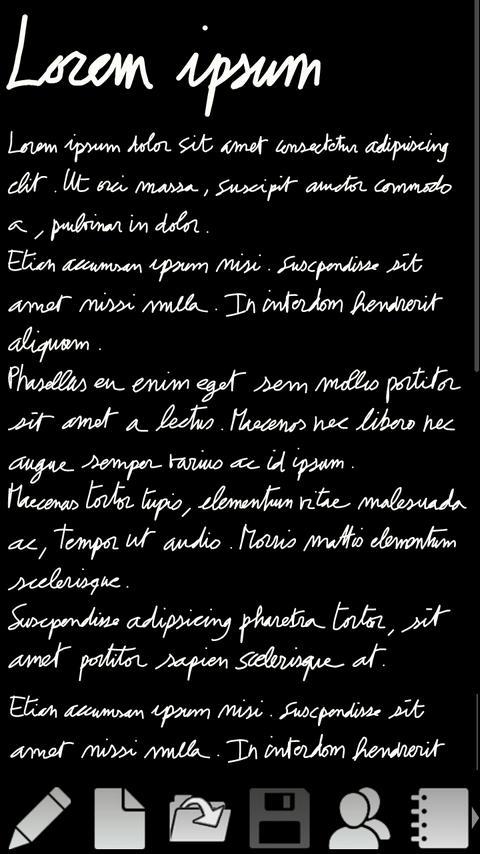 Lorem ipsum
Lorem ipsum dolor sit amet consectetur adipiscing
elit . Ut orci massa , suscipit auctor commodo
a , pulvinar in dolor .
Etian accumsan ipsum nisi . Suscpendisse sit
amet nissi nulla . In interdom hendrerit
aliquam .
Phasellus eu enim eget sem mollis portitor
sit amet a lectus . Maecenas nec libero nec
augue semper varius ac id ipsum .
Maecenas tortor tupis, elementum vitae malesuada
ac, Tempor ut audio . Morsis mattis elementum
scelerisque .
Suscpendisse adipsicing pharetra tortor, sit
amet portitor sapien scelerisque at .
Etian accumsan ipsum nisi . Suscpendisse sit
amet nissi nulla . In interdom hendrerit